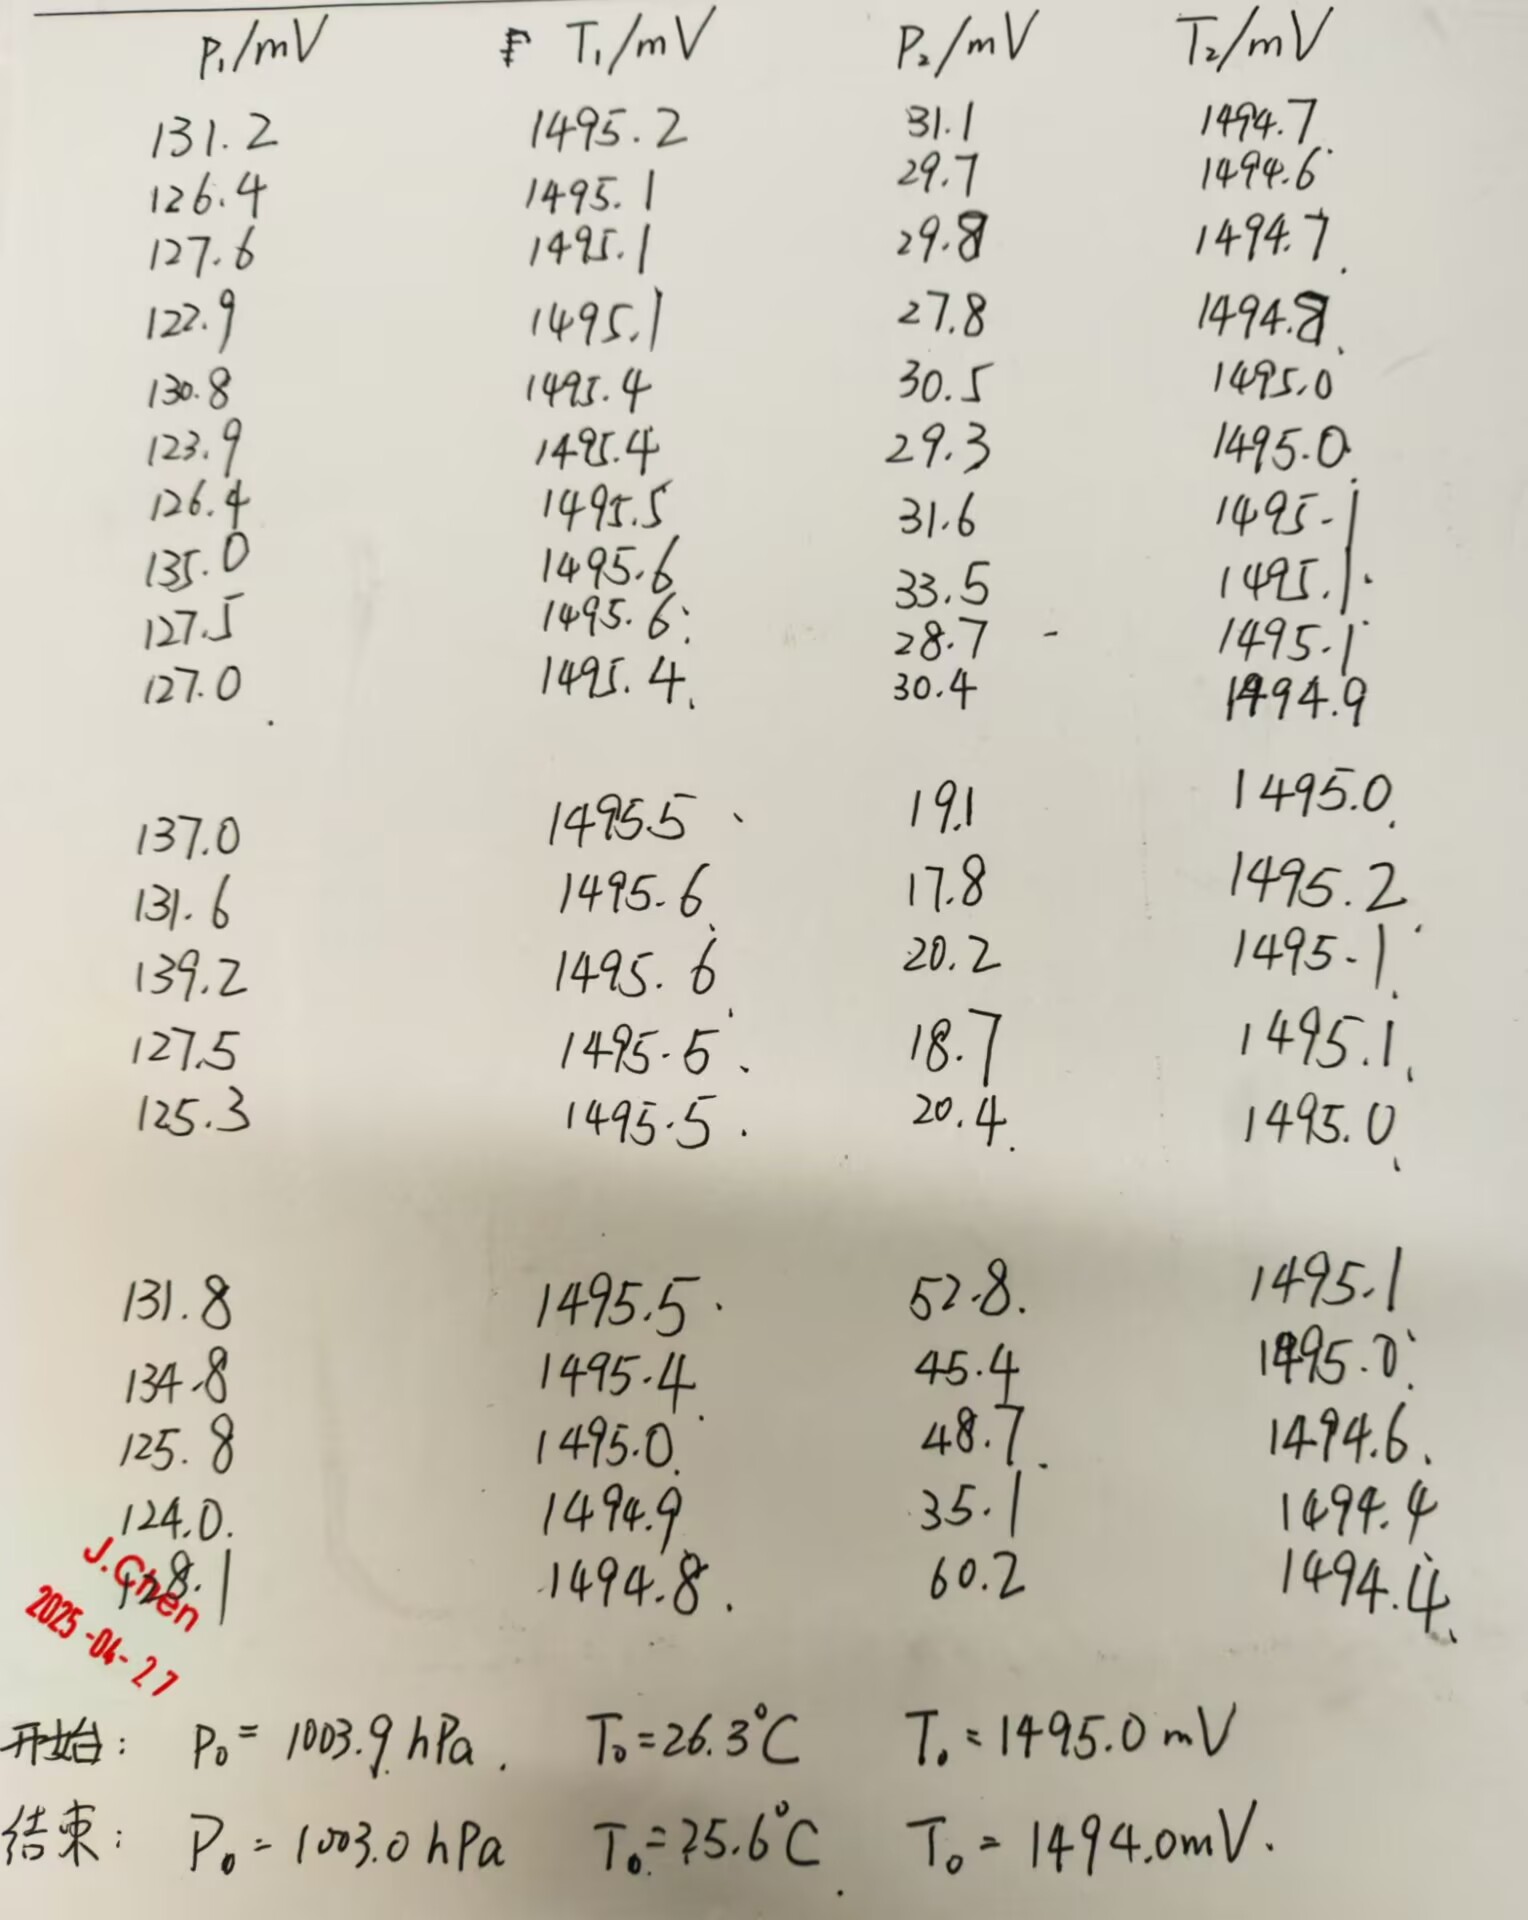 P₁/mV T₁/mV P₂/mV T₂/mV
131.2 1495.2 31.1 1494.7
126.4 1495.1 29.7 1494.6
127.6 1495.1 29.8 1494.7
122.9 1495.1 27.8 1494.8
130.8 1495.4 30.5 1495.0
123.9 1495.4 29.3 1495.0
126.4 1495.5 31.6 1495.1
135.0 1495.6 33.5 1495.1
127.5 1495.6 28.7 1495.1
127.0 1495.4 30.4 1494.9
137.0 1495.5 19.1 1495.0
131.6 1495.6 17.8 1495.2
139.2 1495.6 20.2 1495.1
127.5 1495.5 18.7 1495.1
125.3 1495.5 20.4 1495.0
131.8 1495.5 52.8 1495.1
134.8 1495.4 45.4 1495.0
125.8 1495.0 48.7 1494.6
124.0 1494.9 35.1 1494.4
128.1 1494.8 60.2 1494.4
J.Chen
2025-04-27
开始: P₀ = 1003.9 hPa. T₀ = 26.3°C T₀ = 1495.0 mV
结束: P₀ = 1003.0 hPa T₀ = 25.6°C T₀ = 1494.0 mV.